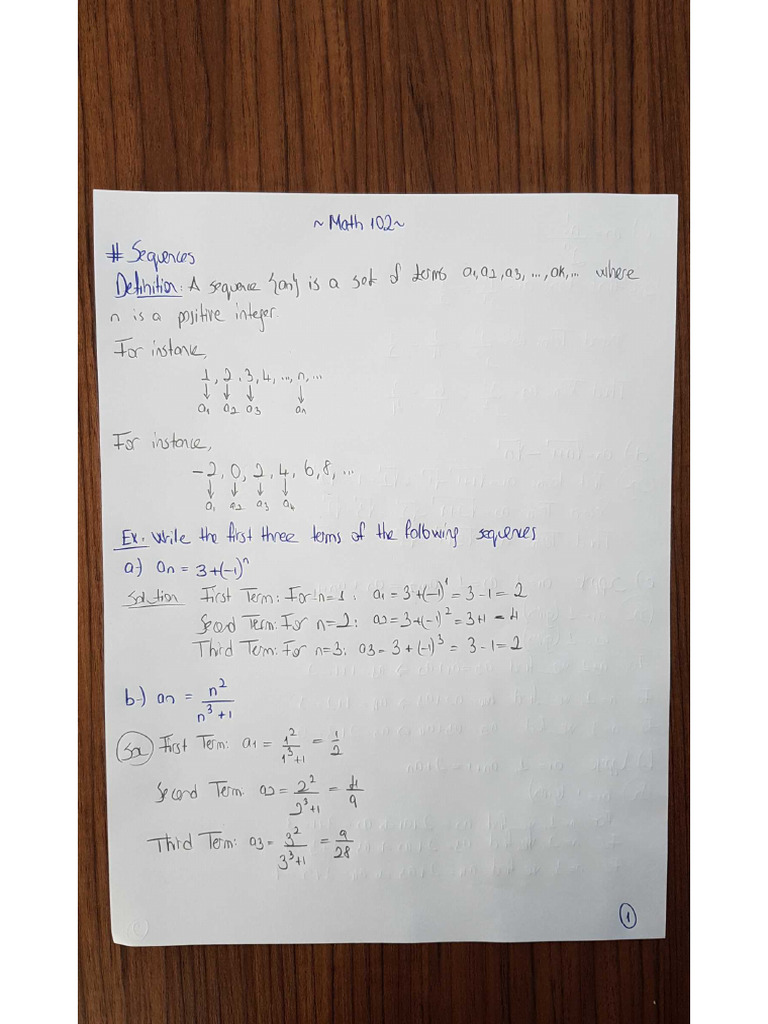 ~Math 102~
# Sequences
Definition: A sequence {an} is a set of terms a1, a2, a3, ..., ak, ... where
n is a positive integer.
For instance,
1, 2, 3, 4, ..., n, ...
↓ ↓ ↓ ↓
a1 a2 a3 an
For instance,
-2, 0, 2, 4, 6, 8, ...
↓ ↓ ↓ ↓
a1 a2 a3 a4
Ex: Write the first three terms of the following sequences
a-) an = 3+(-1)^n
Solution First Term: For n=1: a1 = 3+(-1)^1 = 3-1 = 2
Second Term: For n=2: a2 = 3+(-1)^2 = 3+1 = 4
Third Term: For n=3: a3 = 3+(-1)^3 = 3-1 = 2
b-) an = n^2/(n^3+1)
Sol First Term: a1 = 1^2/(1^3+1) = 1/2
Second Term: a2 = 2^2/(2^3+1) = 4/9
Third Term: a3 = 3^2/(3^3+1) = 9/28
1